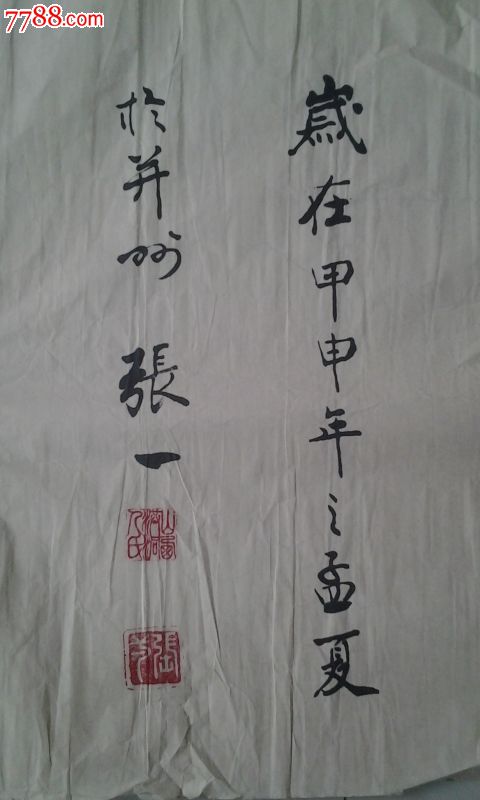 7788.com
歲在甲申年之孟夏
於并州 張一